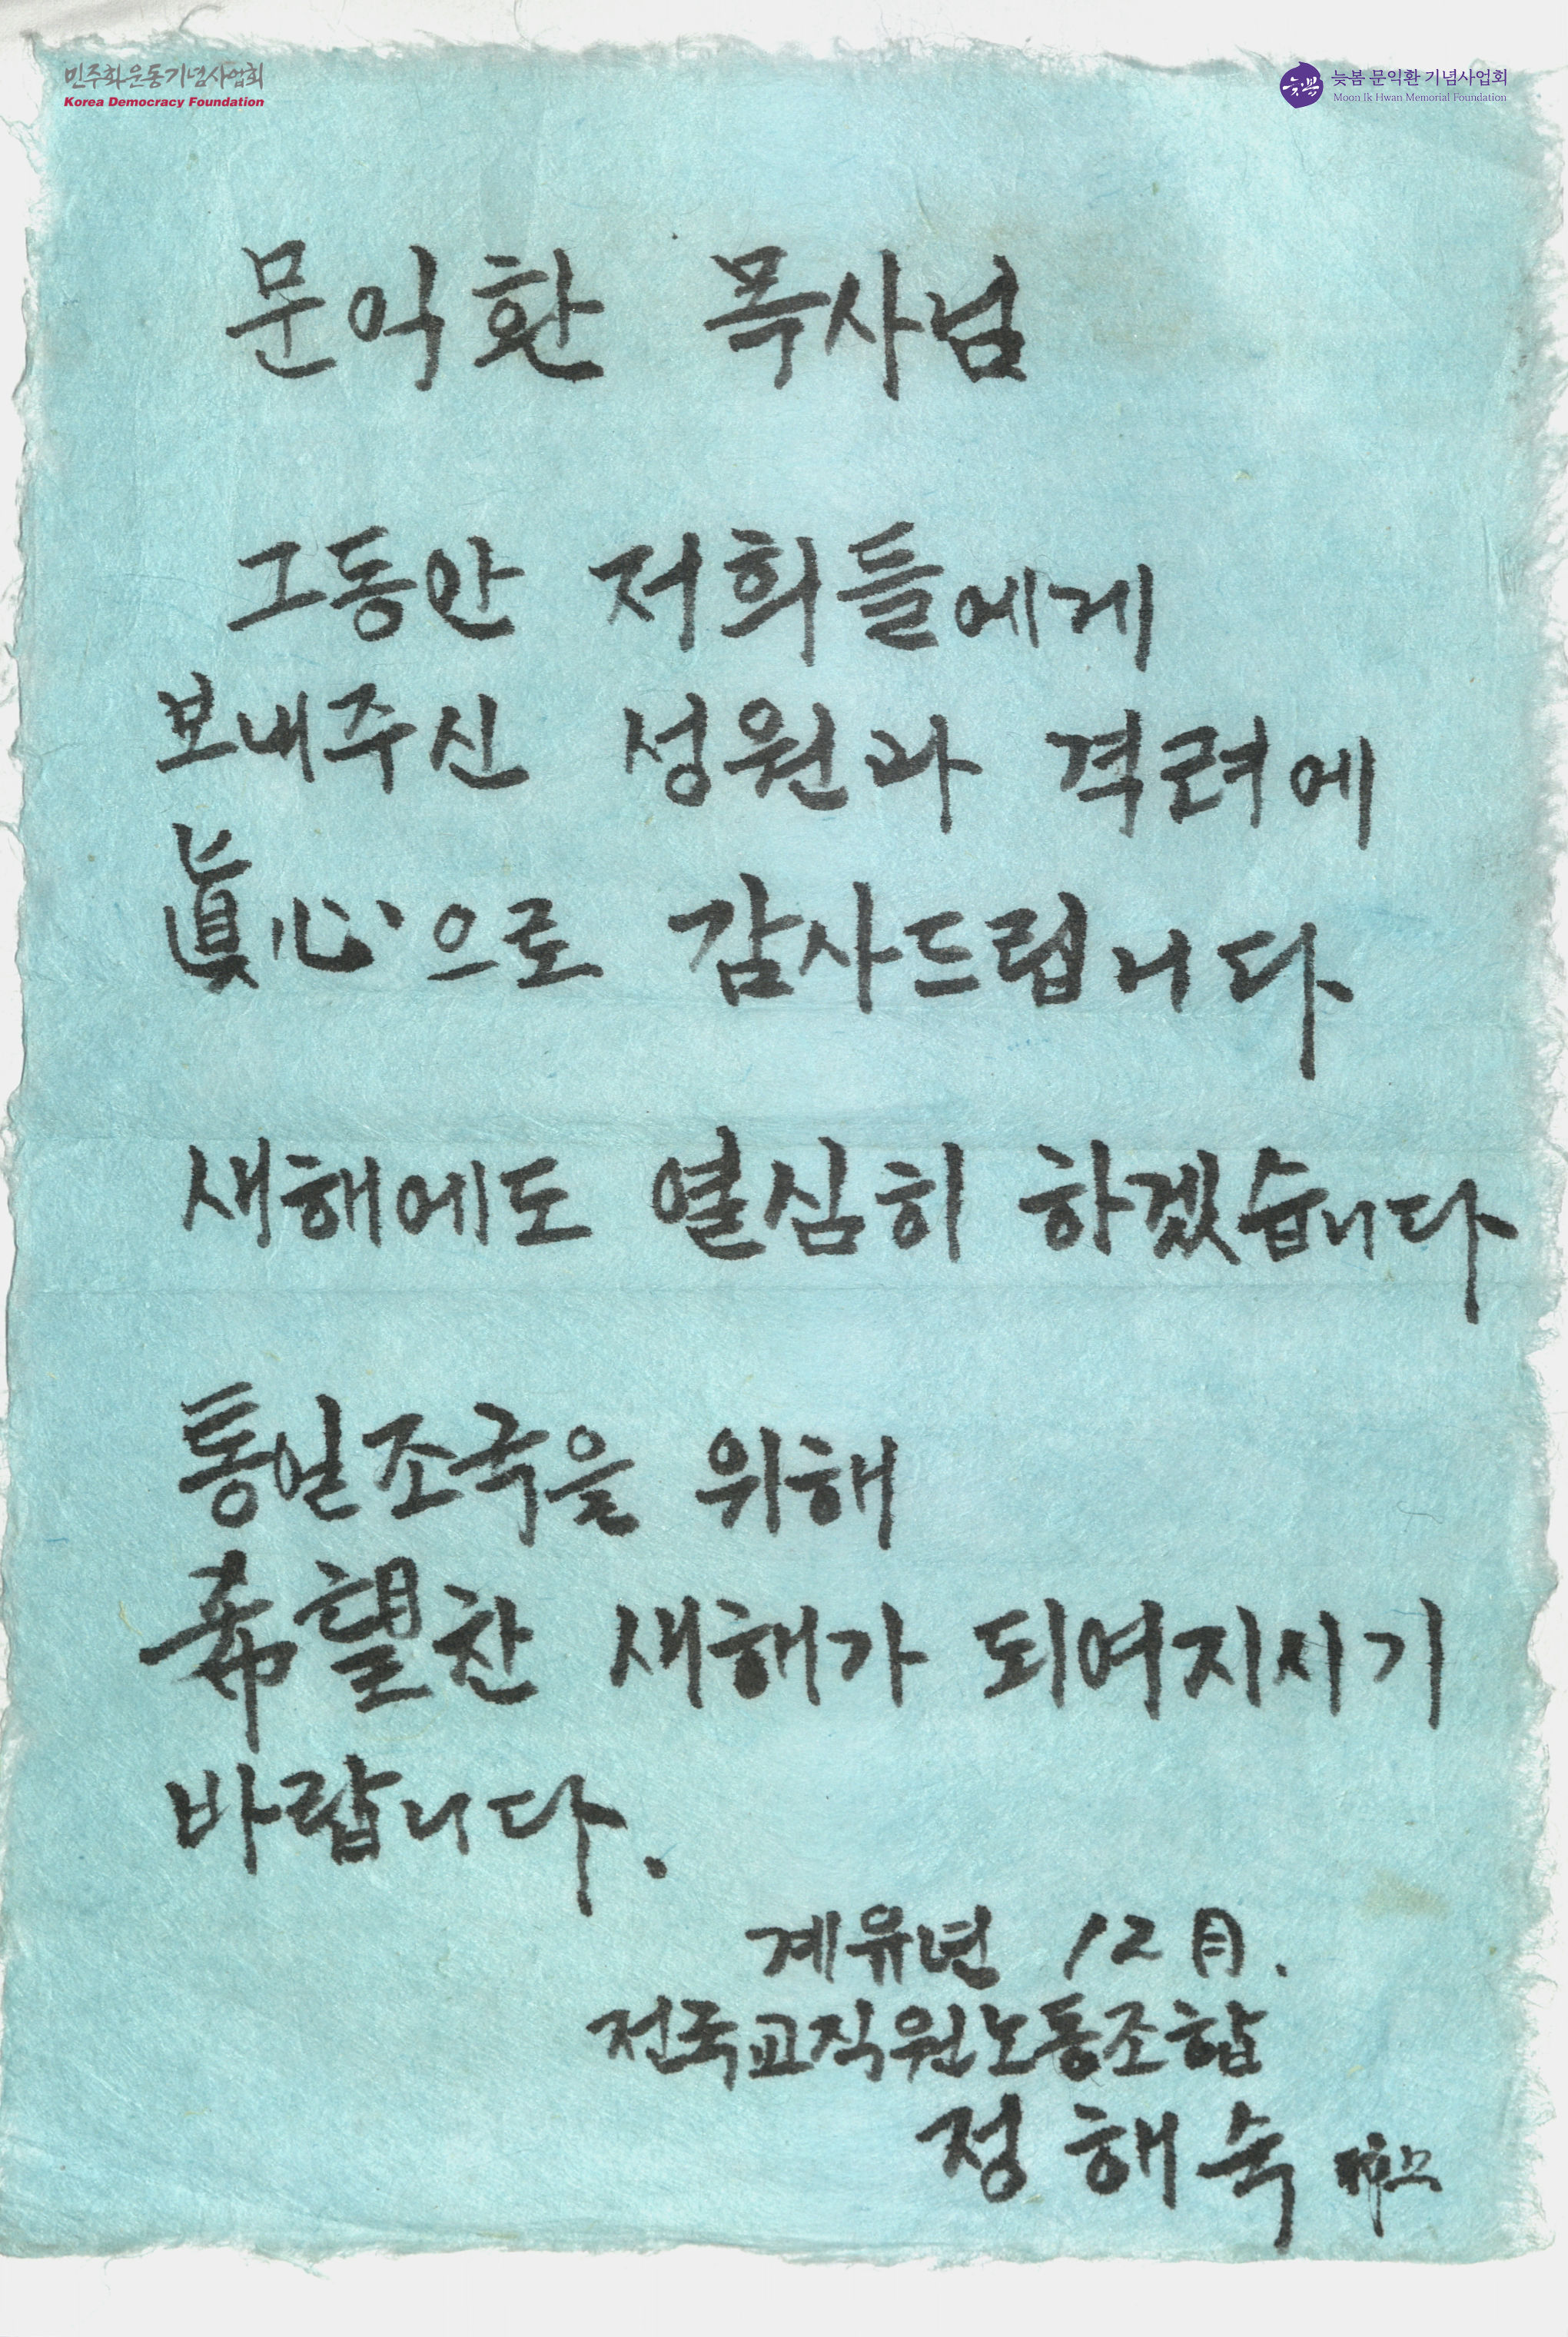 민주화운동기념사업회
Korea Democracy Foundation
늦봄
늦봄 문익환 기념사업회
Moon Ik Hwan Memorial Foundation
문익환 목사님
그동안 저희들에게
보내주신 성원과 격려에
眞心으로 감사드립니다
새해에도 열심히 하겠습니다
통일조국을 위해
希望찬 새해가 되여지시기
바랍니다.
계유년 12月.
전국교직원노동조합
정해숙